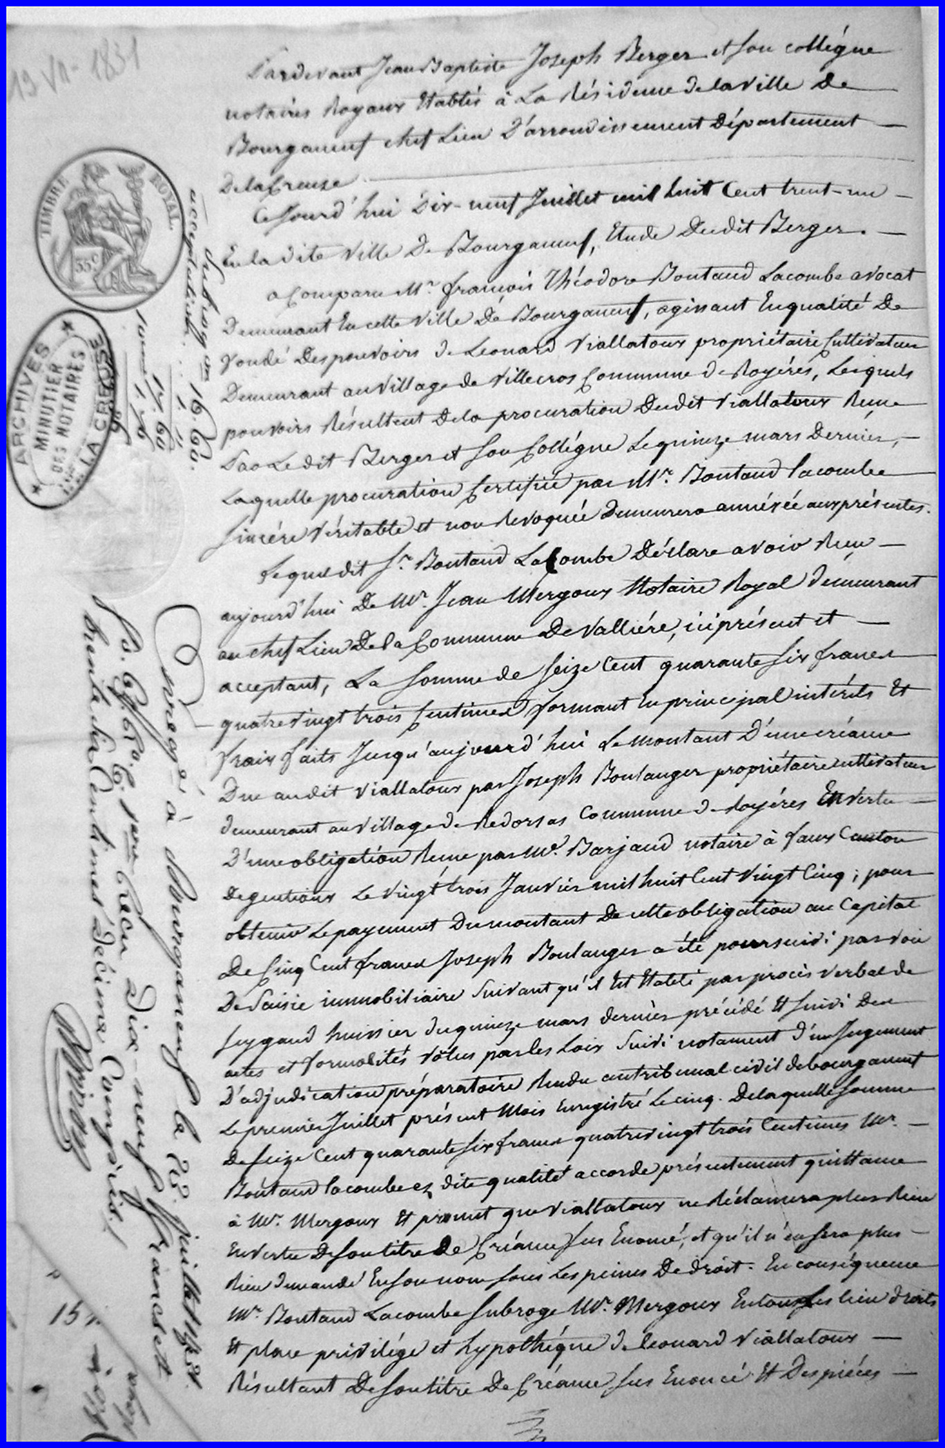 19 Vii - 1831
TIMBRE ROYAL
35c
ARCHIVES
MINUTIER
DES NOTAIRES
LA CREUSE
Pardevant Jean Baptiste Joseph Berger et son collégue
notaires Royaux Etablis à La Résidence de la ville De
Bourganeuf chef Lieu D'arrondissement Département
De la Creuse
Cejourd'hui Dix-neuf Juillet mil huit Cent trent-un
En la dite ville De Bourganeuf, Etude Dudit Berger.
a Comparu Mr. françois théodore Boutaud Lacombe avocat
Demeurant En cette ville De Bourganeuf, agissant En qualité De
fondé Des pouvoirs de Léonard Viallatoux propriétaire Cultivateur
Demeurant au village de villecros Commune de Royérés, Lesquels
pouvoirs Résultent de la procuration Dudit Viallatoux Reçue
Par Le dit Berger et Son Collégue Le quinze mars Dernier,
Laquelle procuration Certifiée par Mr. Boutaud Lacombe
Sincére véritable et non Revoquée Demeurera annéxée aux présentes.
Lequel dit Sr. Boutaud Lacombe Déclare avoir Reçu
aujourd'hui De Mr. Jean Mergoux Notaire Royal Demeurant
au chef Lieu De la Commune De Valliére, ici présent et
acceptant, La Somme de Seize Cent quarante Six francs
quatre vingt trois Centimes formant En principal intéréts Et
frais faits Jusqu'aujourd'hui Le montant D'une créance
Due audit Viallatoux par Joseph Boulanger propriétaire cultivateur
demeurant au village de Redorsas Commune de Royéres En vertu
D'une obligation Reçue par Me. Barjaud notaire à faux Canton
De gentioux Le vingt trois Janvier mil huit Cent vingt Cinq; pour
obtenir Le payement Du montant De cette obligation au Capital
De Cinq Cent francs Joseph Boulanger a été poursuivi par voie
De Saisie immobiliaire Suivant qu'il Est Etabli par procès verbal de
huissier du quinze mars dernier précédé Et Suivi Des
actes et formalités voulus par les Loix Suivi notament d'un Jugement
D'adjudication préparatoire Rendu au tribunal civil de bourganeuf
Le premier Juillet présent Mois Enregistré Le cinq. De laquelle Somme
De Seize Cent quarante Six francs quatre vingt trois Centimes Mr.
Boutaud Lacombe es dite qualité accorde présentement quittance
à Mr. Mergoux Et promet que Viallatoux ne Réclamera plus Rien
En vertu De Son titre De Créance Sus Enoncé, et qu'il n'en Sera plus
Rien demandé En Son nom Sous Les peines De droit. En conséquence
Mr. Boutaud Lacombe Subroge Mr. Mergoux En tous Les lieu droits
Et place privilége et hypothéque de Léonard Viallatoux
Résultant De Son titre De Créance Sus Enoncé Et Des piéces
Enregistré à Bourganeuf le 22 juillet 1831
Reçu Dix-neuf francs et
trente six Centimes Décime Compris.
15